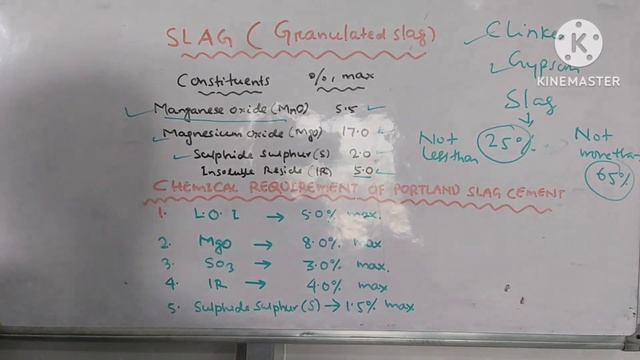 SLAG ( Granulated slag)
Constituents %, max
Manganese oxide (MnO) 5.5
Magnesium oxide (MgO) 17.0
Sulphide Sulphur (S) 2.0
Insoluble Reside (IR) 5.0
Clinker
Gypsum
Slag
Not less than 25%
Not more than 65%
CHEMICAL REQUIREMENT OF PORTLAND SLAG CEMENT
1. L.O.I → 5.0% max.
2. MgO → 8.0% max
3. SO3 → 3.0% max.
4. IR → 4.0% max
5. Sulphide Sulphur (S) → 1.5% max
KINEMASTER